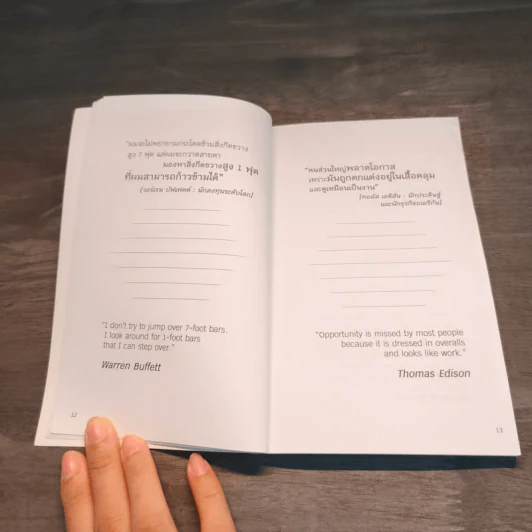 "ผมจะไม่พยายามกระโดดข้ามสิ่งกีดขวาง
สูง 7 ฟุต แต่ผมจะกวาดสายตา
มองหาสิ่งกีดขวางสูง 1 ฟุต
ที่ผมสามารถก้าวข้ามได้"
(วอร์เรน บัฟเฟตต์ : นักลงทุนระดับโลก)
"I don't try to jump over 7-foot bars.
I look around for 1-foot bars
that I can step over."
Warren Buffett
12
"คนส่วนใหญ่พลาดโอกาส
เพราะมันถูกตกแต่งอยู่ในเสื้อคลุม
และดูเหมือนเป็นงาน"
(ทอมัส เอดิสัน : นักประดิษฐ์
และนักธุรกิจอเมริกัน)
"Opportunity is missed by most people
because it is dressed in overalls
and looks like work."
Thomas Edison
13